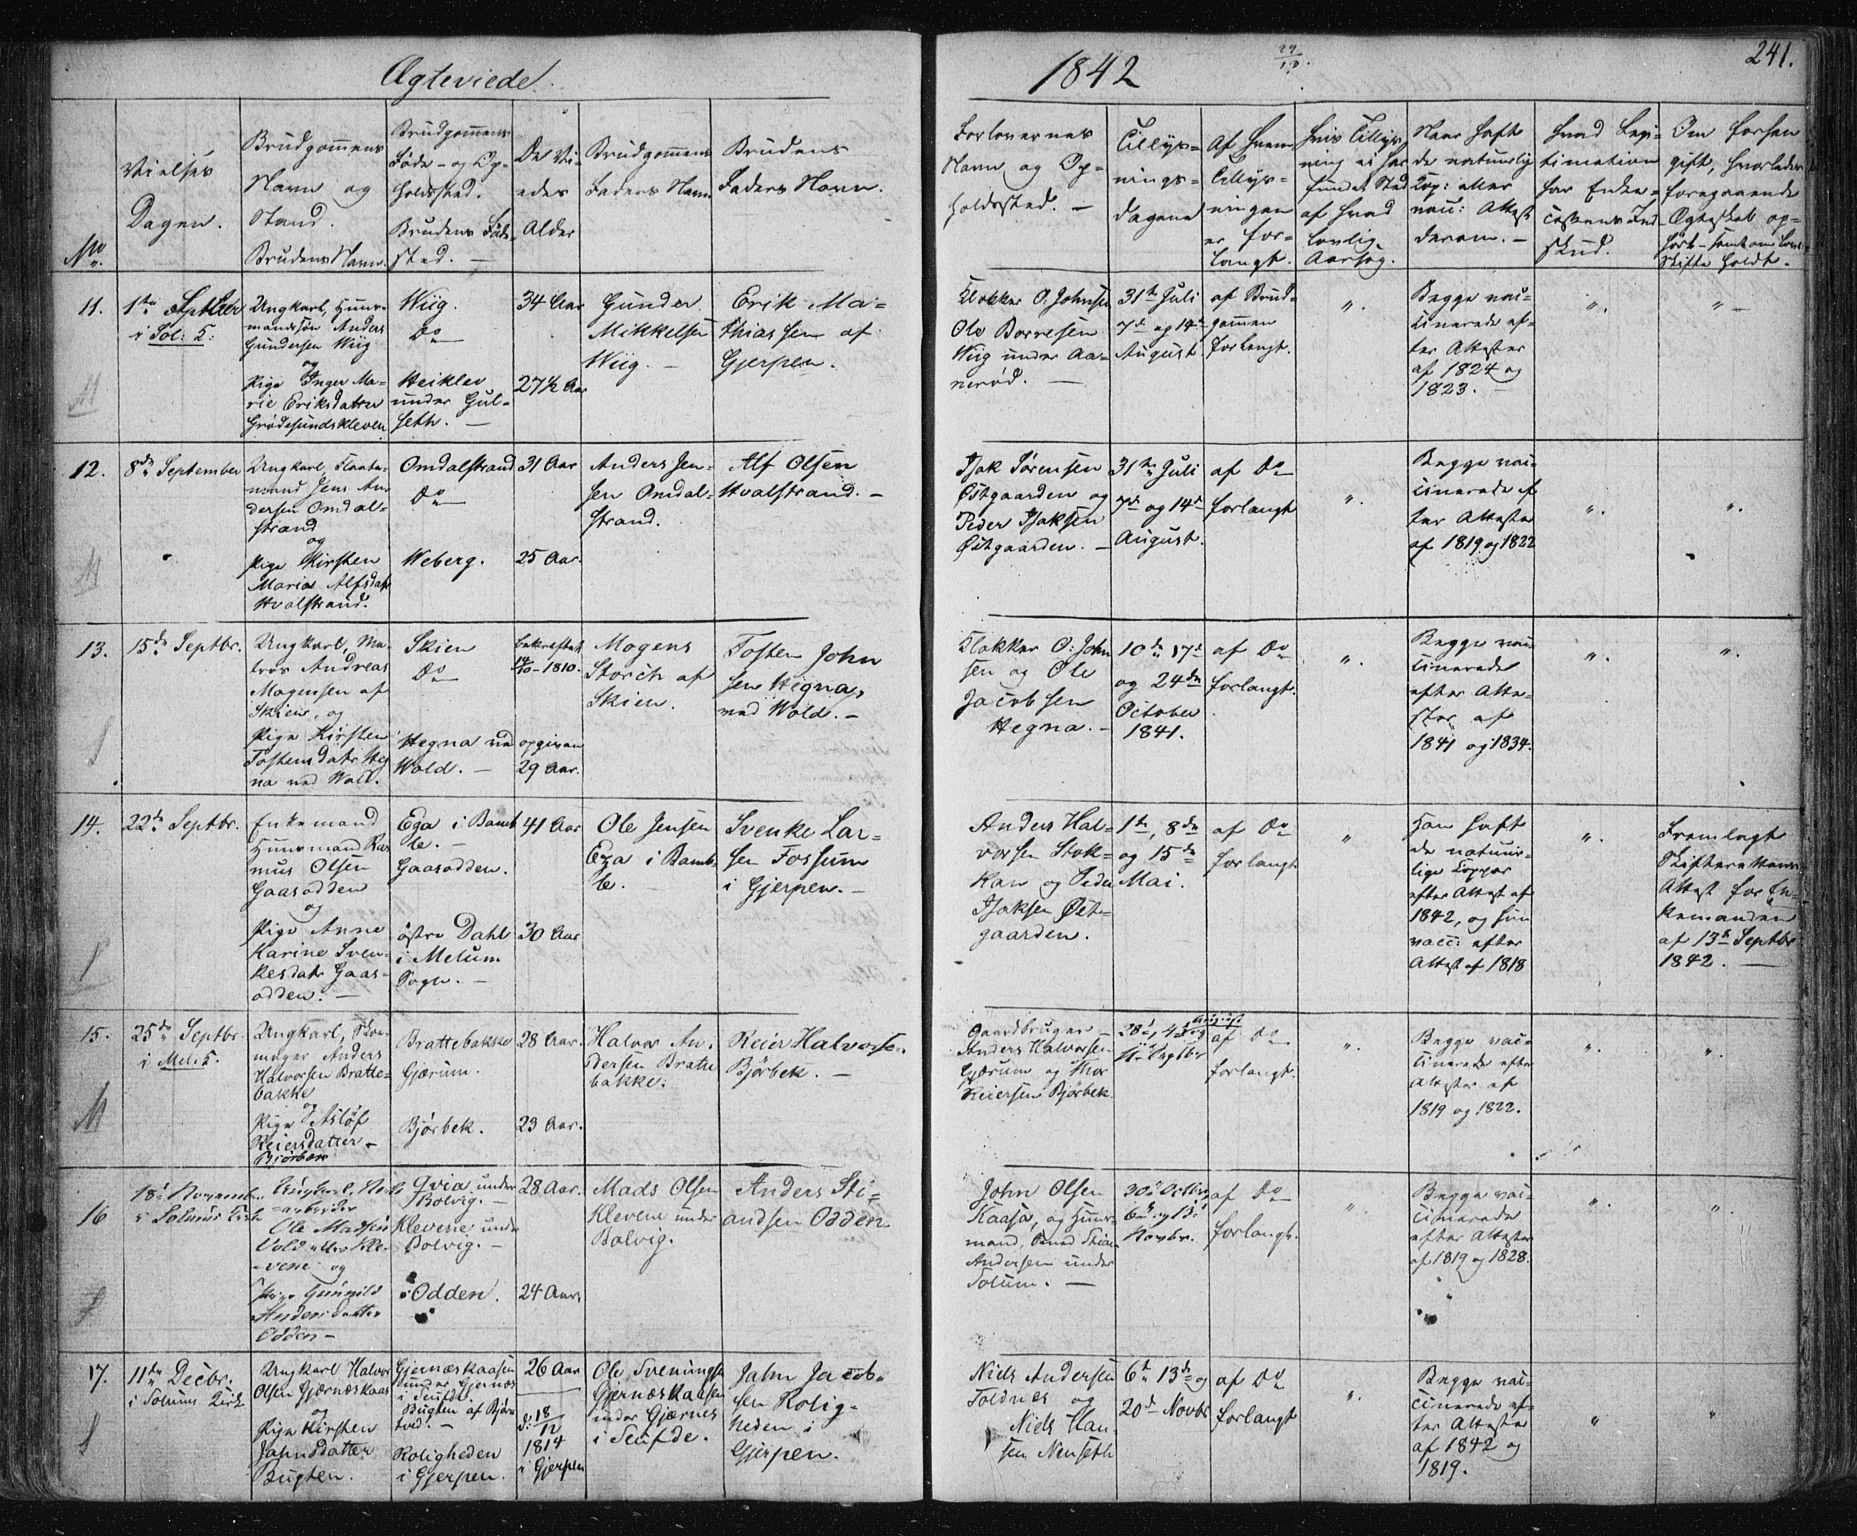 Ægteviede.
1842
29
13.
241.
No.
Vielses
Dagen.
Brudgommens
Navn og
Stand.
Brudens Navn.
Brudgommens
Føde- og Op-
holdssted.
Brudens Føde-
sted. —
De Vi-
edes
Alder
Brudgommens
Faders Navn
Brudens
Faders Navn.
Forlovernes
Navn og Op-
holdssted. —
Tillys-
nings-
dagene
Af hvem
Tillys-
ningen
er for-
langt.
Hvis Tillys-
ning ei har
fundet Sted
af hvad
lovlig
Aarsag.
Naar havt
de naturlig
Kop: eller
vac: Attest
derom. —
Hvad Legi-
timation
har Enke-
cassens Ind
skud.
Om forhen
gift, hvorledes
foregaaende
Ægteskab op-
hørt — samt om
Skifte holdt.
11.
1te Septbr
i Sol: K:
Ungkarl, Huus-
mandssøn Anders
Gundersen Wiig
og
Pige Inger Ma-
rie Eriksdatter
Grødesundskleven
Wiig.
Do
Heiklev
under Gul-
seth. —
34 Aar
27½ Aar
Gunder
Mikkelsen
Wiig. —
Erik Ma-
thiassen af
Gjerpen.
Klokker O. Johnsen
Ole Borresen
Wiig under Aa-
nerød. —
31te Juli
7de og 14de
August
af Brud-
gommen
forlangt.
Begge vac-
cinerede ef-
ter Attester
af 1824 og
1823. —
12.
8de September
Ungkarl, Flaate-
mand Jens An-
dersen Omdal-
strand
og
Pige Kirsten
Maria Alfsdatr
Hvalstrand.
Omdalstrand
Do
Weberg.
31 Aar
25 Aar.
Anders Jen-
sen Omdal-
strand.
Alf Olsen
Hvalstrand. —
Isak Sørensen
Østgaarden og
Peder Isaksen
Østgaarden. —
31te Juli
7de og 14de
August.
af Do
forlangt
Begge vac-
cinerede ef
ter Attester
af 1819 og 1822
13.
15de Septbr.
Ungkarl, Ma-
tros Andreas
Mogensen af
Skien, og
Pige Kirsten
Tostensdatr Heg
na ved Wold.
Skien
Do
Hegna ved
Wold. —
bekræftet
1810.
opgiven
29 Aar.
Mogens
Storch af
Skien.
Tosten John
sen Hegna,
ved Wold. —
Klokker O: John
sen og Ole
Jacobsen
Hegna. —
10de 17de
og 24de
October
1841.
af Do
forlangt.
Begge vac-
cinerede
efter Atte-
ster af
1841 og 1834.
14.
22de Septbr.
Enkemand
Huusmand Ras
mus Olsen
Gaasodden
og
Pige Anne
Karine Sven-
kesdatr Gaas-
odden. —
Ega i Bamb
le. —
Gaasodden.
østre Dahl
i Melum
Sogn. —
41 Aar
30 Aar
Ole Jensen
Ega i Bamb
le. —
Svenke Lar-
sen Fossum
i Gjerpen. —
Anders Hal-
vorsen Stok-
kan og Peder
Isaksen Øst-
gaarden.
1te, 8de
og 15de
Mai.
af Do
forlangt
Han havt
de natuur-
lige Kopper
efter Attest af
1842, og hun
vacc: efter
Attest af 1818
Fremlagt
Skifterettens
Attest for En-
kemanden
af 13de Septbr
1842. —
15.
25de Septbr.
i Mel: K.
Ungkarl, Skoe-
mager Anders
Halvorsen Bratte-
bakke
og
Pige Aslöf
Reiersdatter
Bjørbek
Brattebakke
Gjærum.
Bjørbek.
28 Aar.
23 Aar.
Halvor An-
dersen Bratte
bakke.
Reier Halvorse-
Bjørbek. —
Gaardbruger
Anders Halvorsen
Gjærum og Thor
Reiersen Bjørbek.
af Do
forlangt.
Begge vac-
cinerede efter
Attester af
1819 og 1822.
16
18de November
i Solums Kirke
Ungkarl,
arbeider
Ole Madsen
Vold eller Kle-
vene og
Pige Gunnild
Andersdatter
Odden —
under
Bolvig. —
Klevene und
Bolvig. —
Odden.
28 Aar.
24 Aar
Mads Olsen
Klevene under
Bolvig.
Anders Sti-
andsen Odden
John Olsen
Kaasa, og Huus-
mand, Stian
Andersen under
Solum. —
30te Octbr
6te og 13de
Novbr.
af Do
forlangt.
Begge vac-
cinerede
efter Attester
af 1819 og 1828.
17.
11te Decbr.
i Solums Kirk
Ungkarl Halvor
Olsen Gjærneskaas
og
Pige Kirsten
Jahnsdatter
Bugten.
Gjerneskaasen
under Gjernæs
i Seufde
Bugten af Bjørn
tved. —
Roligheden
i Gjerpen.
26 Aar
d: 18/12
1814
i Gjerpen
Ole Sveningsen
Gjerneskaasen
under Gjærnes
i Seufde.
Jahn Jacob-
sen Rolig-
heden i
Gjerpen.
Niels Andersen
Toldnes og
Niels Han-
sen Nenseth
6te 13de og
20de Novbr
af Do
forlangt
Begge vac-
cinerede ef-
ter Attester
af 1842 og
1819.